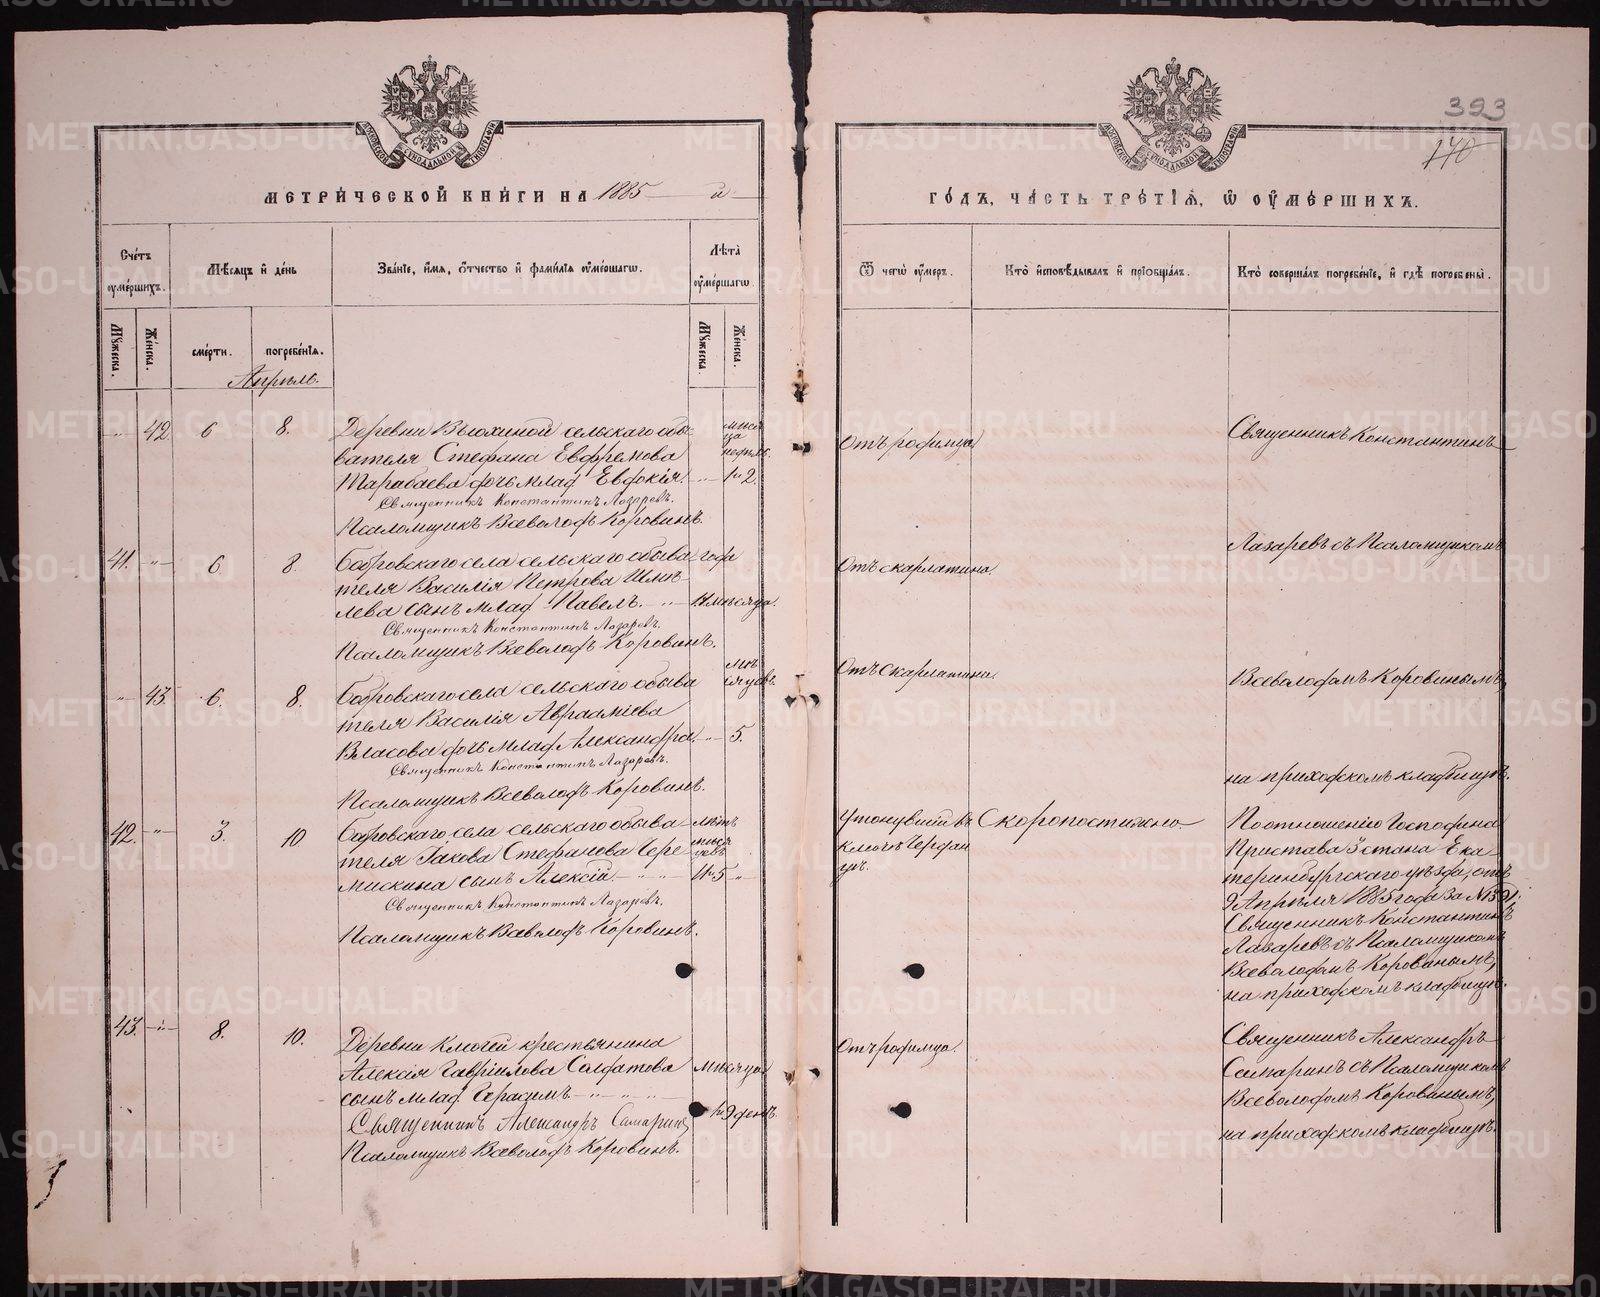 393
170
МЕТРИЧЕСКОЙ КНИГИ НА 1885 й
ГОДЪ, ЧАСТЬ ТРЕТІЯ, Ѡ ОУМЕРШИХЪ.
Счетъ оумершихъ.
Мѣсяцъ и день
Званіе, имя, отчество и фамилія оумершагѡ.
Лѣта оумершагѡ.
Ѿ чегѡ оумеръ.
Кто исповѣдывалъ и пріобщалъ.
Кто совершалъ погребеніе, и гдѣ погребены.
Мужеска.
Женска.
смерти.
погребенія.
Мужеска.
Женска.
Апрѣль.
42 6 8. Деревни Вьюхиной сельскаго обы-
вателя Стефана Евфремова
Тарабаева дочь млад Евдокія. 1 и 2.
Священникъ Константинъ Лазаревъ.
Псаломщикъ Всеволодъ Коровинъ.
Отъ родимца
Священникъ Константинъ
41. 6 8. Бобровскаго села сельскаго обыва года
теля Василія Петрова Шме-
лева сынъ млад Павелъ. мѣсяца.
Священникъ Константинъ Лазаревъ.
Псаломщикъ Всеволодъ Коровинъ.
Отъ скарлатина.
Лазаревъ съ Псаломщикомъ
43. 6. 8. Бобровскаго села сельскаго обыва мѣ сяцевъ.
теля Василія Авраамиева
Власова дочь млад Александра. 5.
Священникъ Константинъ Лазаревъ.
Псаломщикъ Всеволодъ Коровинъ.
Отъ скарлатина.
Всеволодомъ Коровинымъ,
на приходскомъ кладбищѣ.
42. 3. 10 Бобровскаго села сельскаго обыва лѣтъ
теля Іакова Стефанова Чере мѣся цевъ
мискина сынъ Алексій 11 и 5
Священникъ Константинъ Лазаревъ.
Псаломщикъ Всеволодъ Коровинъ.
Утонувшій въ
ключѣ Чердан
цѣ.
Скоропостижно.
По отношенію Господина
Пристава 3 стана Ека-
теринбургскаго уѣзда, отъ
9 Апрѣля 1885 года за № 1591:
Священникъ Константинъ
Лазаревъ съ Псаломщикомъ
Всеволодомъ Коровинымъ,
на приходскомъ кладбищѣ.
43. 8. 10. Деревни Ключей крестьянина
Алексія Гавріилова Солдатова мѣсяца
сынъ млад Герасимъ
Священникъ Александръ Самаринъ
1 и 9 день.
Псаломщикъ Всеволодъ Коровинъ.
Отъ родимца.
Священникъ Александръ
Самаринъ съ Псаломщикомъ
Всеволодомъ Коровинымъ,
на приходскомъ кладбищѣ.
METRIKI.GASO-URAL.RU